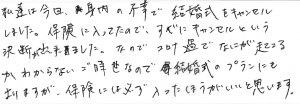 私達は今回、身内の不幸で結婚式をキャンセル
しました。保険に入ってたので、すぐにキャンセルという
決断が出来ました。なのでコロナ過でなにが起こる
かわからないご時世なので結婚式のプランにも
よりますが、保険には必ず入ったほうがいいと思います。